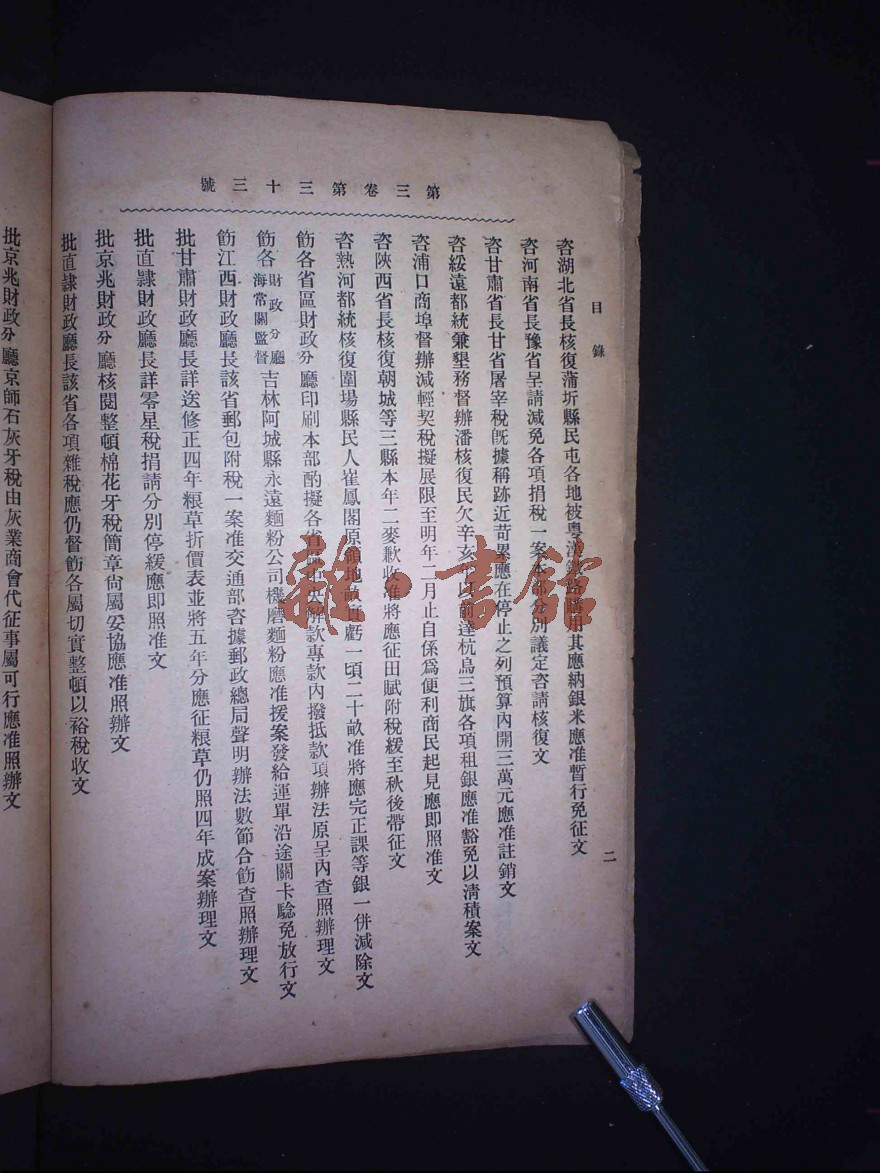 第三卷第三十三號
目錄
二
咨湖北省長核復蒲圻縣民屯各地被粵漢鐵路購用其應納銀米應准暫行免征文
咨河南省長豫省呈請減免各項捐稅一案本部分別議定咨請核復文
咨甘肅省長甘省屠宰稅旣據稱跡近苛累應在停止之列預算內開三萬元應准註銷文
咨綏遠都統兼墾務督辦潘核復民欠辛亥年以前達杭烏三旗各項租銀應准豁免以淸積案文
咨浦口商埠督辦減輕契稅擬展限至明年二月止自係爲便利商民起見應即照准文
咨陝西省長核復朝城等三縣本年二麥歉收准將應征田賦附稅緩至秋後帶征文
咨熱河都統核復圍場縣民人崔鳳閣原領地畝實虧一頃二十畝准將應完正課等銀一併減除文
飭各省區財政分廳印刷本部酌擬各省區中央解款專款內撥抵款項辦法原呈內查照辦理文
飭各財政分廳海常關監督吉林阿城縣永遠麵粉公司機磨麵粉應准援案發給運單沿途關卡驗免放行文
飭江西財政廳長該省郵包附稅一案准交通部咨據郵政總局聲明辦法數節合飭查照辦理文
批甘肅財政廳長詳送修正四年粮草折價表並將五年分應征粮草仍照四年成案辦理文
批直隷財政廳長詳零星稅捐請分別停緩應即照准文
批京兆財政分廳核閱整頓棉花牙稅簡章尙屬妥協應准照辦文
批直隷財政廳長該省各項雜稅應仍督飭各屬切實整頓以裕稅收文
批京兆財政分廳京師石灰牙稅由灰業商會代征事屬可行應准照辦文
雜·書館